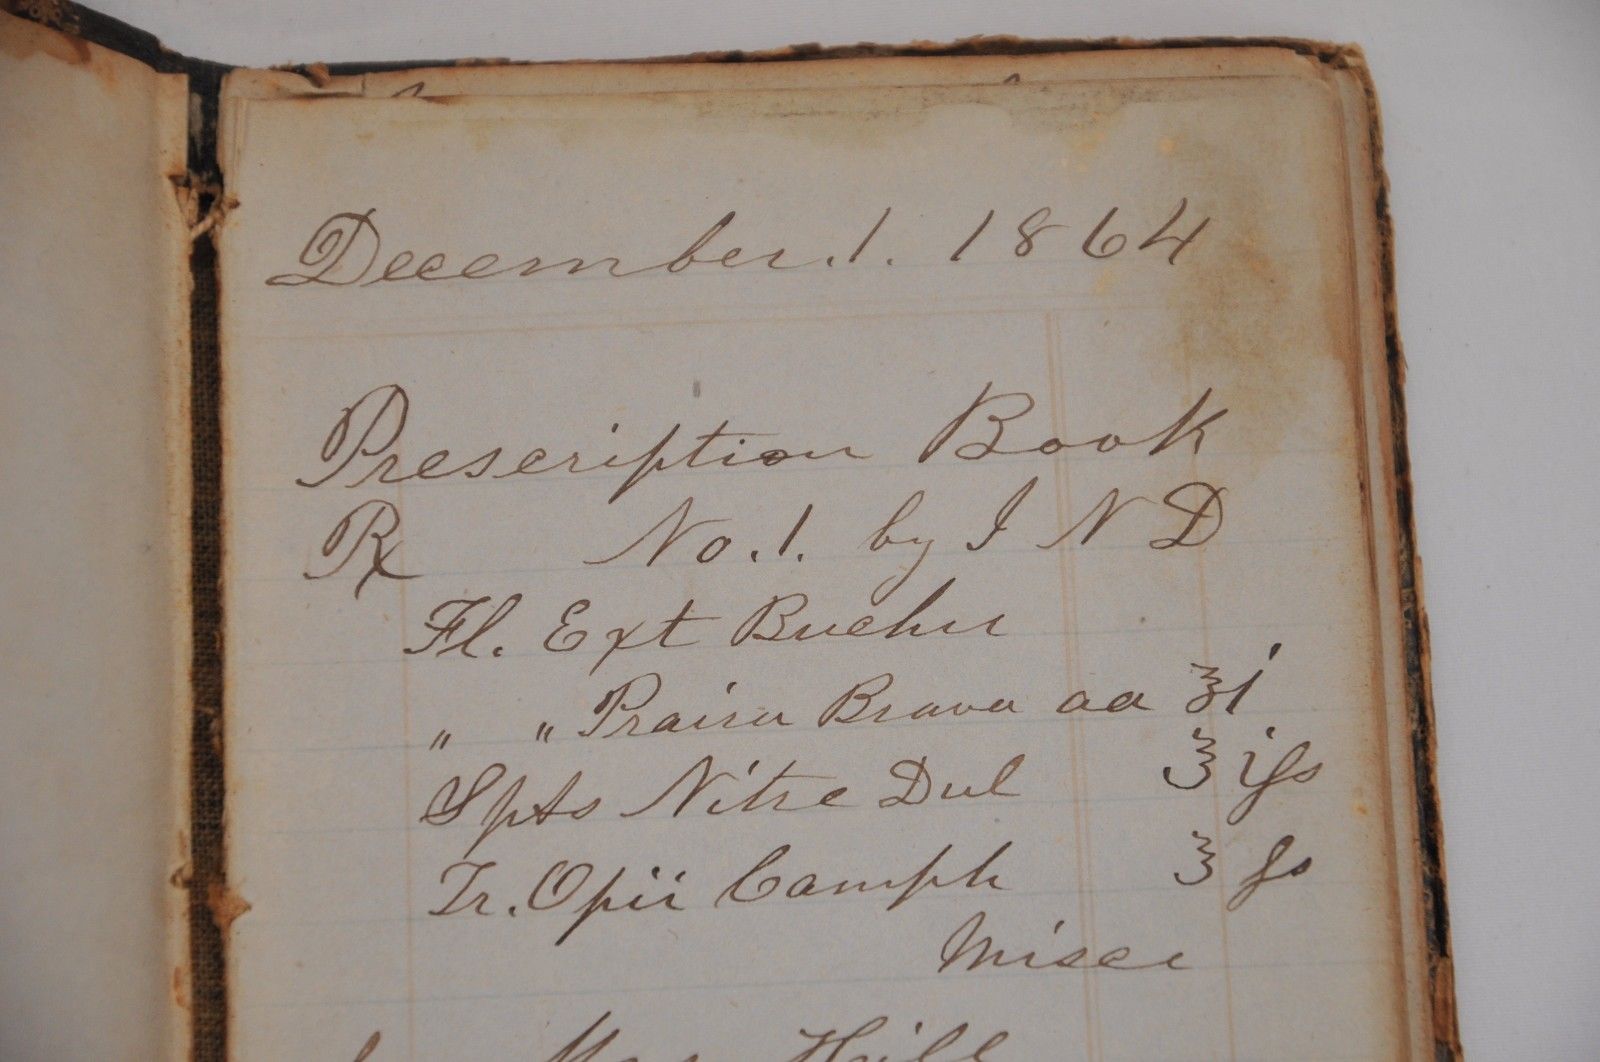 December. 1. 1864
Prescription Book
Rx No. 1. by I N D
Fl. Ext Buchu
" " Praira Brava aa ℥i
Spts Nitre Dul ℥ iſs
Tr. Opii Camph ℥ ſs
Misce